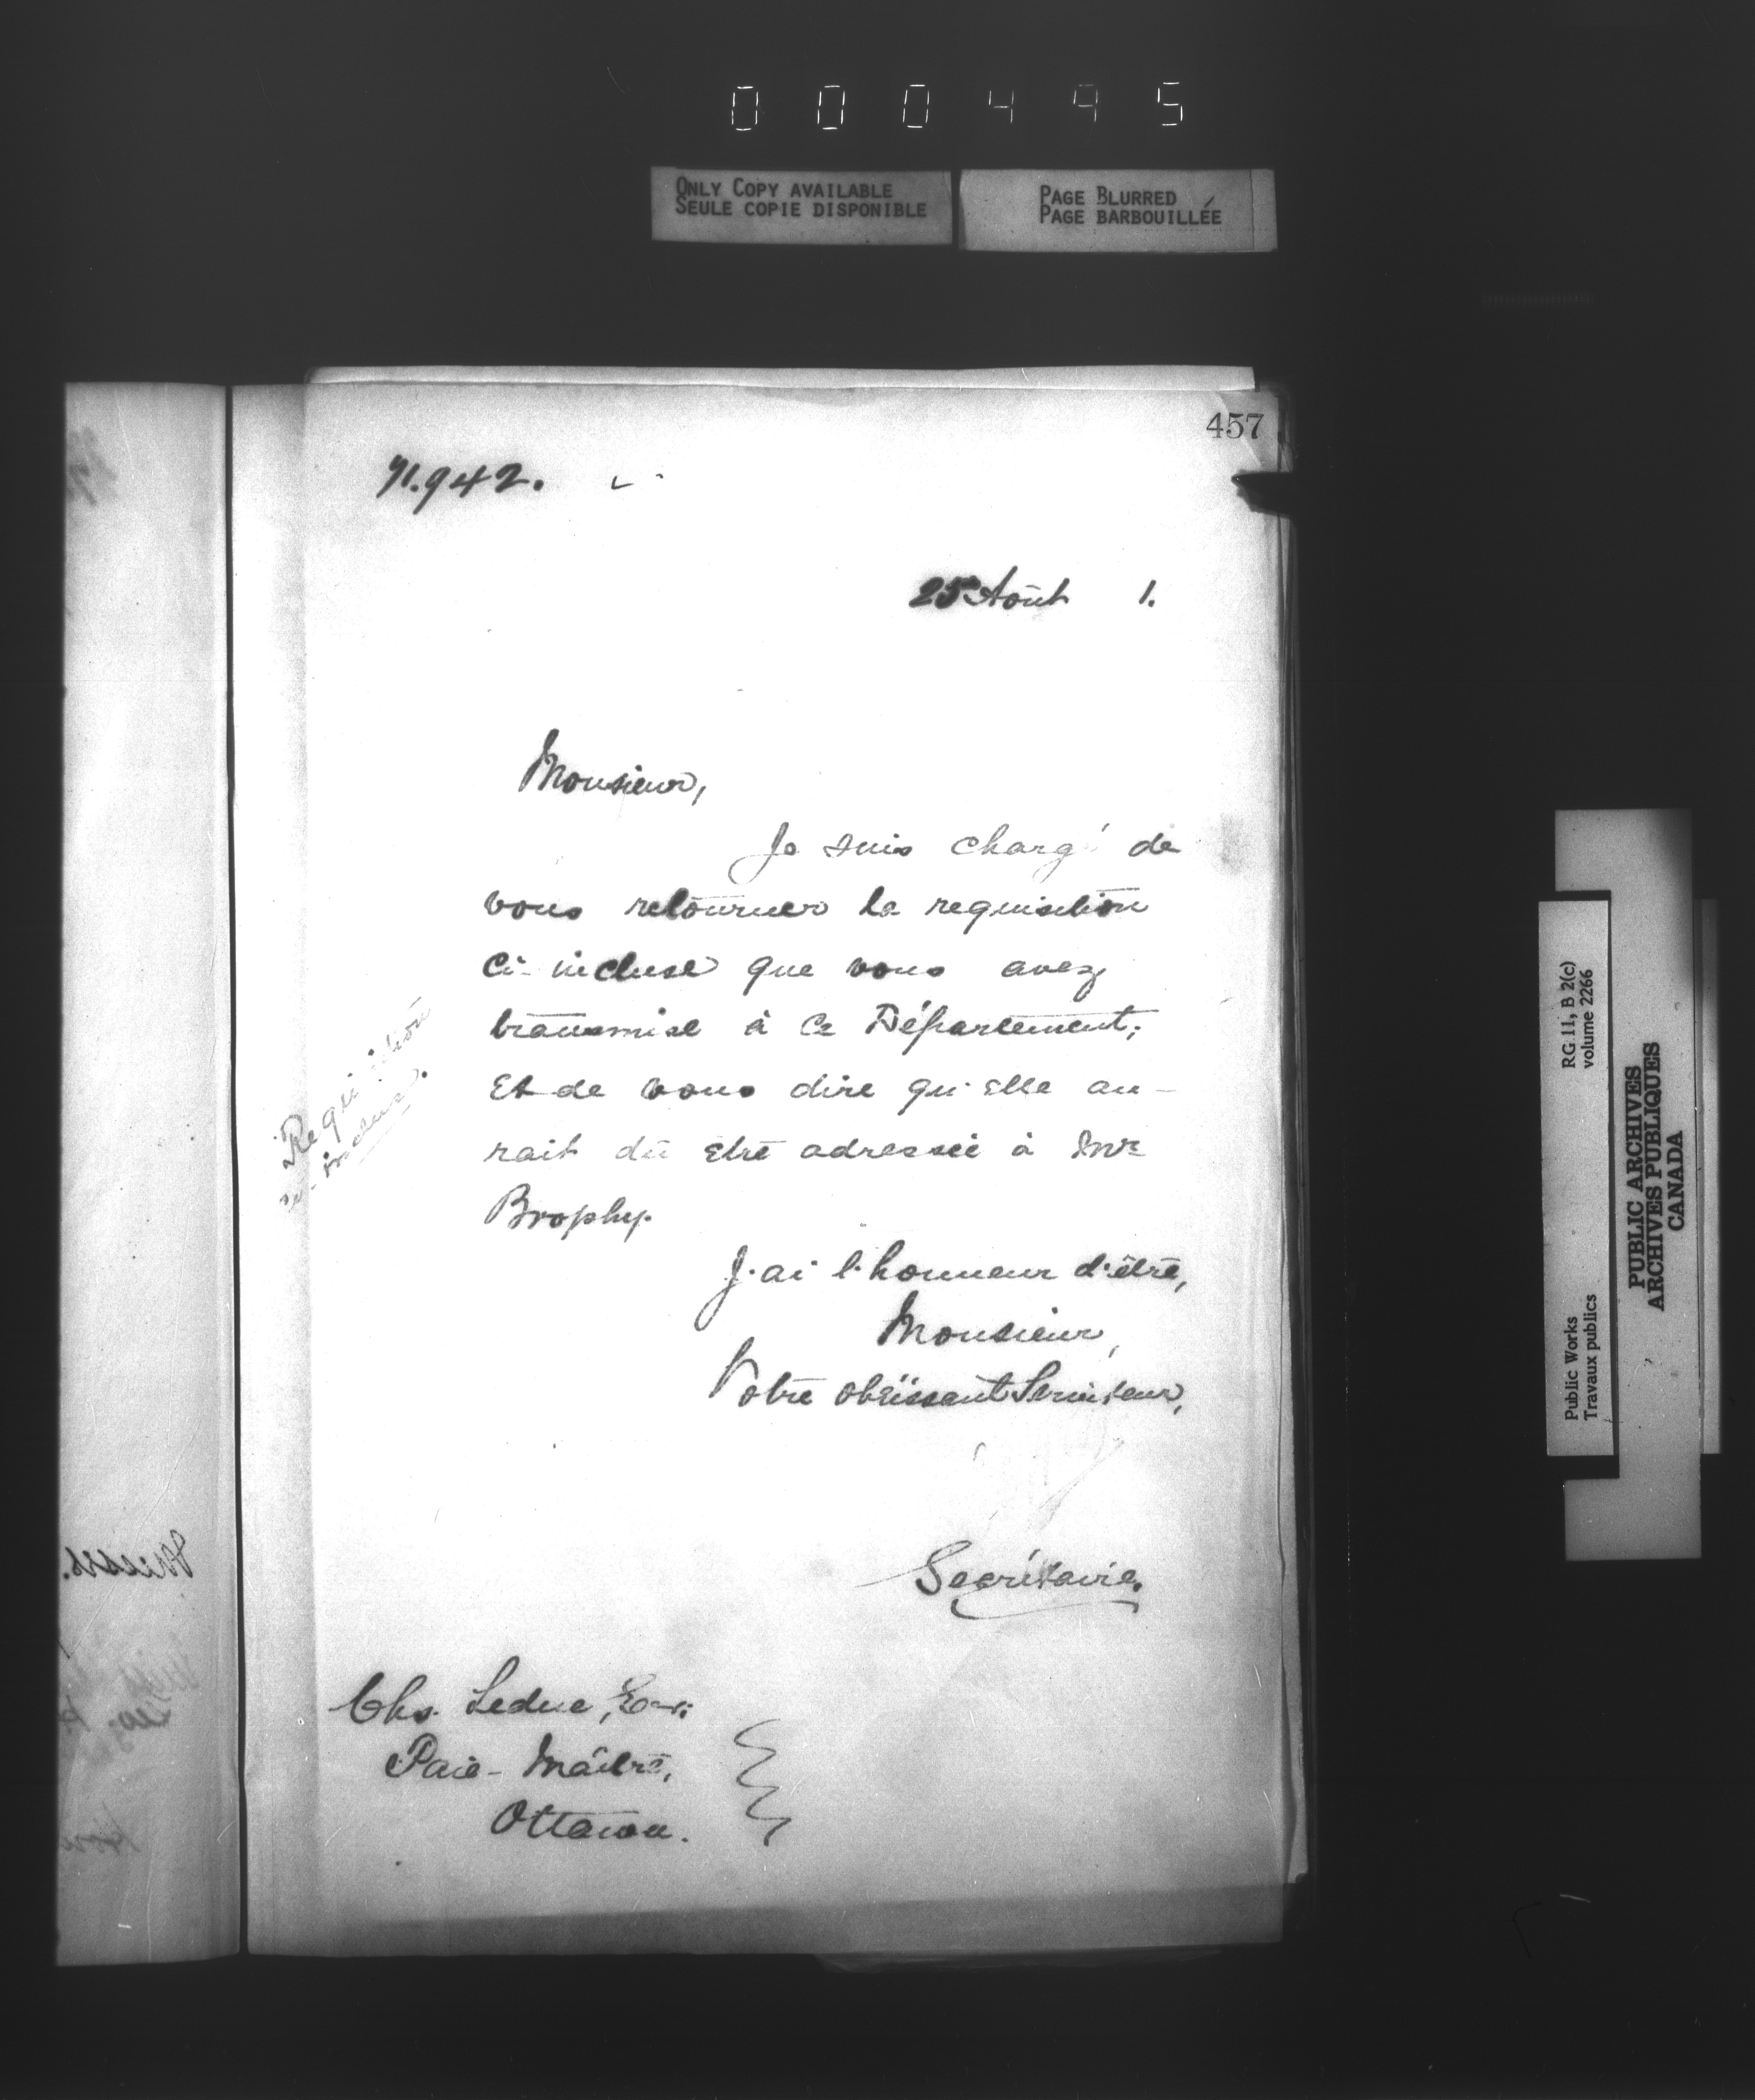 000495
ONLY COPY AVAILABLE
SEULE COPIE DISPONIBLE
PAGE BLURRED
PAGE BARBOUILLÉE
457
71.942.
25 Août 1.
Monsieur,
Je suis chargé de
vous retourner la requisition
ci-incluse que vous avez
transmise à ce Département;
Et de vous dire qu'elle au-
rait dû être adressée à Mr
Brophy.
Requisition
ci-incluse.
J'ai l'honneur d'être,
Monsieur,
Votre obéissant Serviteur,
Secrétaire.
Chs. Leduc, Ecr.
Paie-Maître,
Ottawa.
RG 11, B 2(c)
volume 2266
Public Works
Travaux publics
PUBLIC ARCHIVES
ARCHIVES PUBLIQUES
CANADA